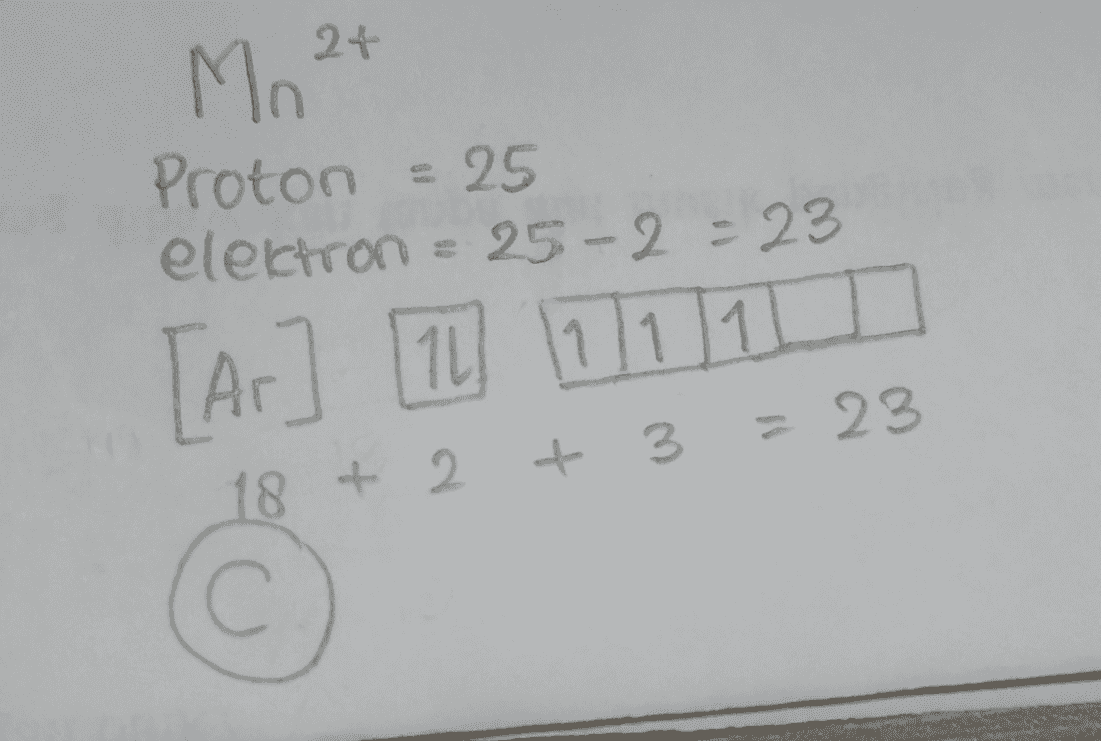 Mn²⁺
Proton = 25
elektron = 25 - 2 = 23
[Ar] 1L 1 1 1
18 + 2 + 3 = 23
C